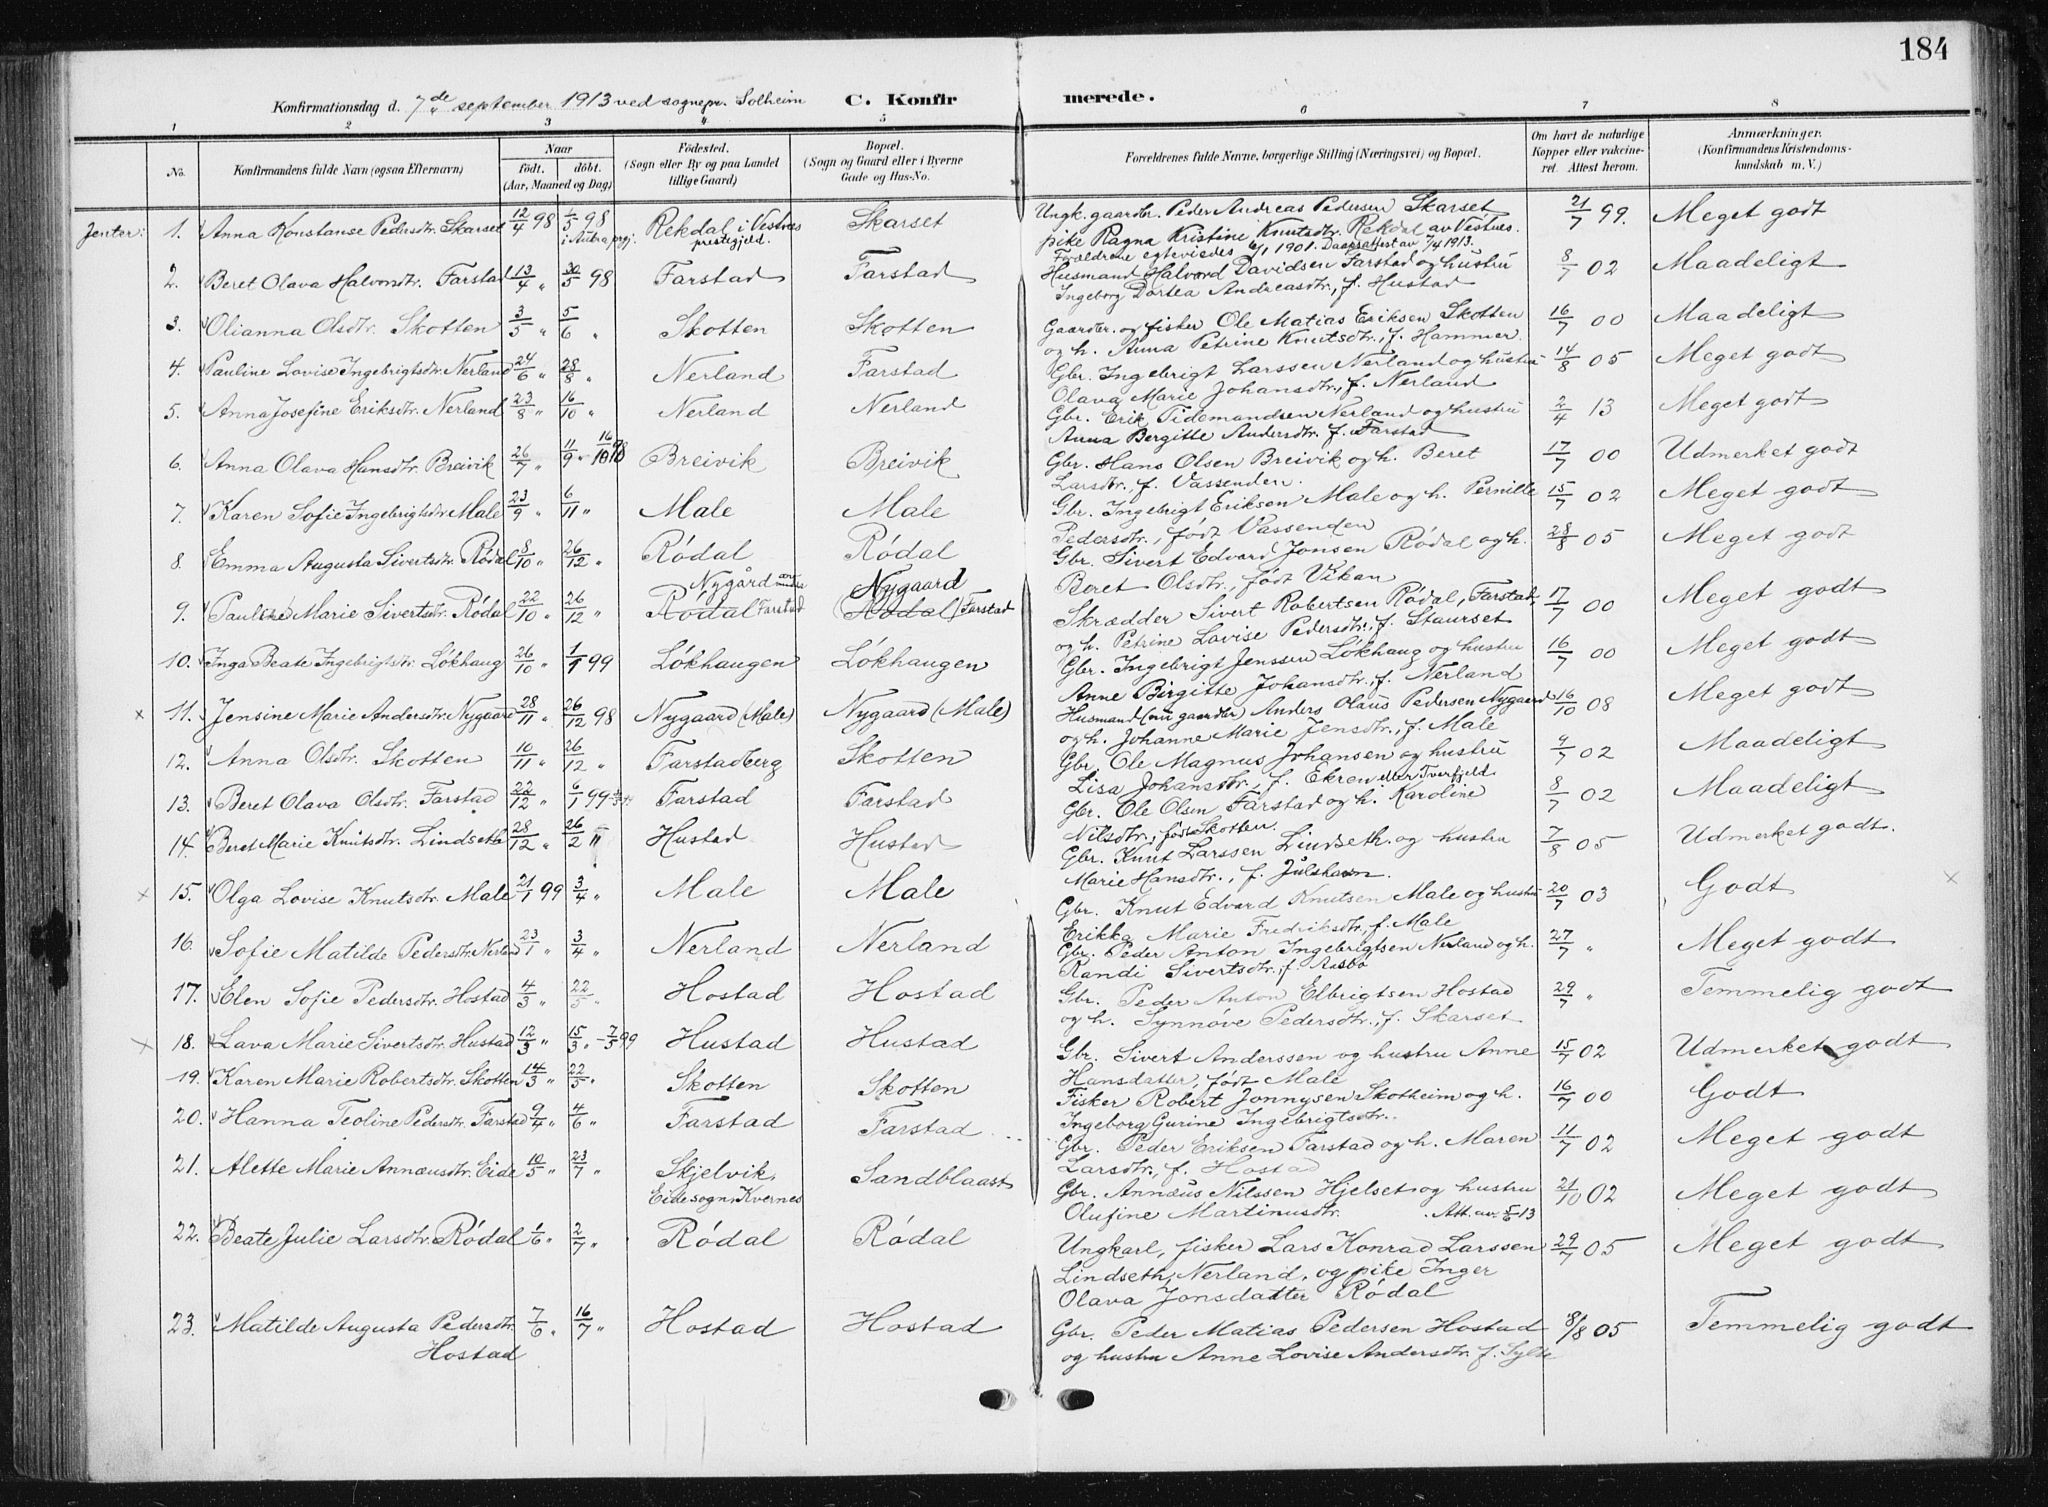 184
Konfirmationsdag d. 7de september 1913 ved sognepr. Solheim C. Konfirmerede.
1 2 3 4 5 6 7 8
No. Konfirmandens fulde Navn (ogsaa Efternavn) Naar født. døbt. (Aar, Maaned og Dag) Fødested. (Sogn eller By og paa Landet tillige Gaard) Bopæl. (Sogn og Gaard eller i Byerne Gade og Hus-No. Forældrenes fulde Navne, borgerlige Stilling (Næringsvei) og Bopæl. Om havt de naturlige Kopper eller vakcineret. Attest herom. Anmærkninger. (Konfirmandens Kristendomskundskab m. V.)
Jenter: 1. Anna Konstanse Pedersdtr. Skarset 12/4 98 1/5 98 i Aukra prgj. Rekdal i Vestnes prestegjeld. Skarset Ungk. gaardbr. Peder Andreas Pedersen Skarset 21/7 99. Meget godt
pike Ragna Kristine Knutsdtr. Rekdal av Vestnes.
Forældrene egteviedes 6/1 1901. Daapsattest av 7/4 1913.
2. Beret Olava Halvorsdtr. Farstad 13/4 " 30/5 98 Farstad Farstad Husmand Halvord Davidsen Farstad og hustru 8/7 02 Maadeligt
Ingeborg Dortea Andreasdtr., f. Hustad
3. Olianna Olsdtr. Skotten 3/5 " 5/6 " Skotten Skotten Gaardbr. og fisker Ole Matias Eriksen Skotten 16/7 00 Maadeligt
og h. Anna Petrine Knutsdtr., f. Hammer.
4. Pauline Lovise Ingebrigtsdtr. Nerland 24/6 " 28/8 " Nerland Farstad Gbr. Ingebrigt Larssen Nerland og hustru 14/8 05 Meget godt
Olava Marie Johansdtr., f. Nerland
5. Anna Josefine Eriksdtr. Nerland 23/8 " 16/10 " Nerland Nerland Gbr. Erik Tidemandsen Nerland og hustru 2/4 13 Meget godt
Anna Bergitte Andersdtr. f. Farstad
6. Anna Olava Hansdtr. Breivik 26/7 " 11/9 " 16/10 98 Breivik Breivik Gbr. Hans Olsen Breivik og h. Beret 17/7 00 Udmerket godt
Larsdtr., f. Vassenden.
7. Karen Sofie Ingebrigtsdtr. Male 23/9 " 6/11 " Male Male Gbr. Ingebrigt Eriksen Male og h. Pernille 15/7 02 Meget godt
Pedersdtr., født Vassenden
8. Emma Augusta Sivertsdtr. Ródal 8/10 " 26/12 " Ródal Ródal Gbr. Sivert Edvard Jonsen Ródal og h. 28/8 05 Meget godt
Beret Olsdtr., født Vikan
9. Pauline Marie Sivertsdtr. Ródal 22/10 " 26/12 " Nygård Ródal Farstad Nygaard (Ródal) Farstad Skrædder Sivert Robertsen Ródal, Farstad, 17/7 00 Meget godt
og h. Petrine Lovise Pedersdtr., f. Staurset
10. Inga Beate Ingebrigtsdtr. Lókhaug 26/10 " 1/1 99 Lókhaugen Lókhaugen Gbr. Ingebrigt Jenssen Lókhaug og hustru 16/7 00 Meget godt
Anne Birgitte Johansdtr. f. Nerland
x 11. Jensine Marie Andersdtr. Nygaard 28/11 " 26/12 98 Nygaard (Male) Nygaard (Male) Husmand (nu gaardbr) Anders Olaus Pedersen Nygaard 16/10 08 Meget godt
og h. Johanne Marie Jensdtr., f. Male
12. Anna Olsdtr. Skotten 10/11 " 26/12 " Farstadberg Skotten Gbr. Ole Magnus Johansen og hustru 9/7 02 Maadeligt
Lisa Johansdtr., f. Ekren eller Tverfjeld
13. Beret Olava Olsdtr. Farstad 22/12 " 6/1 99 Farstad Farstad Gbr. Ole Olsen Farstad og h. Karoline 8/7 02 Maadeligt
Nilsdtr., født Skotten.
14. Beret Marie Knutsdtr. Lindseth 28/12 " 26/2 " Hustad Hustad Gbr. Knut Larssen Lindseth. og hustru 7/8 05 Udmerket godt.
Marie Hansdtr., f. Julshavn.
x 15. Olga Lovise Knutsdtr. Male 21/1 99 3/4 " Male Male Gbr. Knut Edvard Knutsen Male og hustru 20/7 03 Godt x
Erikka Marie Fredriksdtr., f. Male
16. Sofie Matilde Pedersdtr. Nerland 23/1 " 3/4 " Nerland Nerland Gbr. Peder Anton Ingebrigtsen Nerland og h. 27/7 " Meget godt
Randi Sivertsdtr., f. Aasbø
17. Elen Sofie Pedersdtr. Hostad 4/3 " 22/5 " Hostad Hostad Gbr. Peder Anton Elbrigtsen Hostad 29/7 " Temmelig godt
og h. Synnøve Pedersdtr., f. Skarset
x 18. Lava Marie Sivertsdtr. Hustad 12/3 " 15/3 " - 7/5 99 Hustad Hustad Gbr. Sivert Anderssen og hustru Anne 15/7 02 Udmerket godt
Hansdatter, født Male
19. Karen Marie Robertsdtr. Skotten 14/3 " 22/5 " Skotten Skotten Fisker Robert Jonnysen Skotheim og h. 16/7 00 Godt
Ingeborg Gurine Ingebrigtsdtr.
20. Hanna Teoline Pedersdtr. Farstad 9/4 " 4/6 " Farstad Farstad Gbr. Peder Eriksen Farstad og h. Maren 11/7 02 Meget godt
Larsdtr., f. Hostad
21. Alette Marie Annæusdtr. Eide 10/5 " 23/7 " Skjelvik, Eide sogn, Kvernes Sandblaast Gbr. Annæus Nilssen Hjelset og hustru 21/10 02 Meget godt
Olufine Martinusdtr. Att. av. 5/6 13
22. Beate Julie Larsdtr. Ródal 1/6 " 2/7 " Ródal Ródal Ungkarl, fisker Lars Konrad Larssen 29/7 05 Meget godt
Lindseth, Nerland, og pike Inger
Olava Jonsdatter Ródal
23. Matilde Augusta Pedersdtr. Hostad 7/6 " 16/7 " Hostad Hostad Gbr. Peder Matias Pedersen Hostad 18/8 05 Temmelig godt
og hustru Anne Lovise Andersdtr. f. Sylte